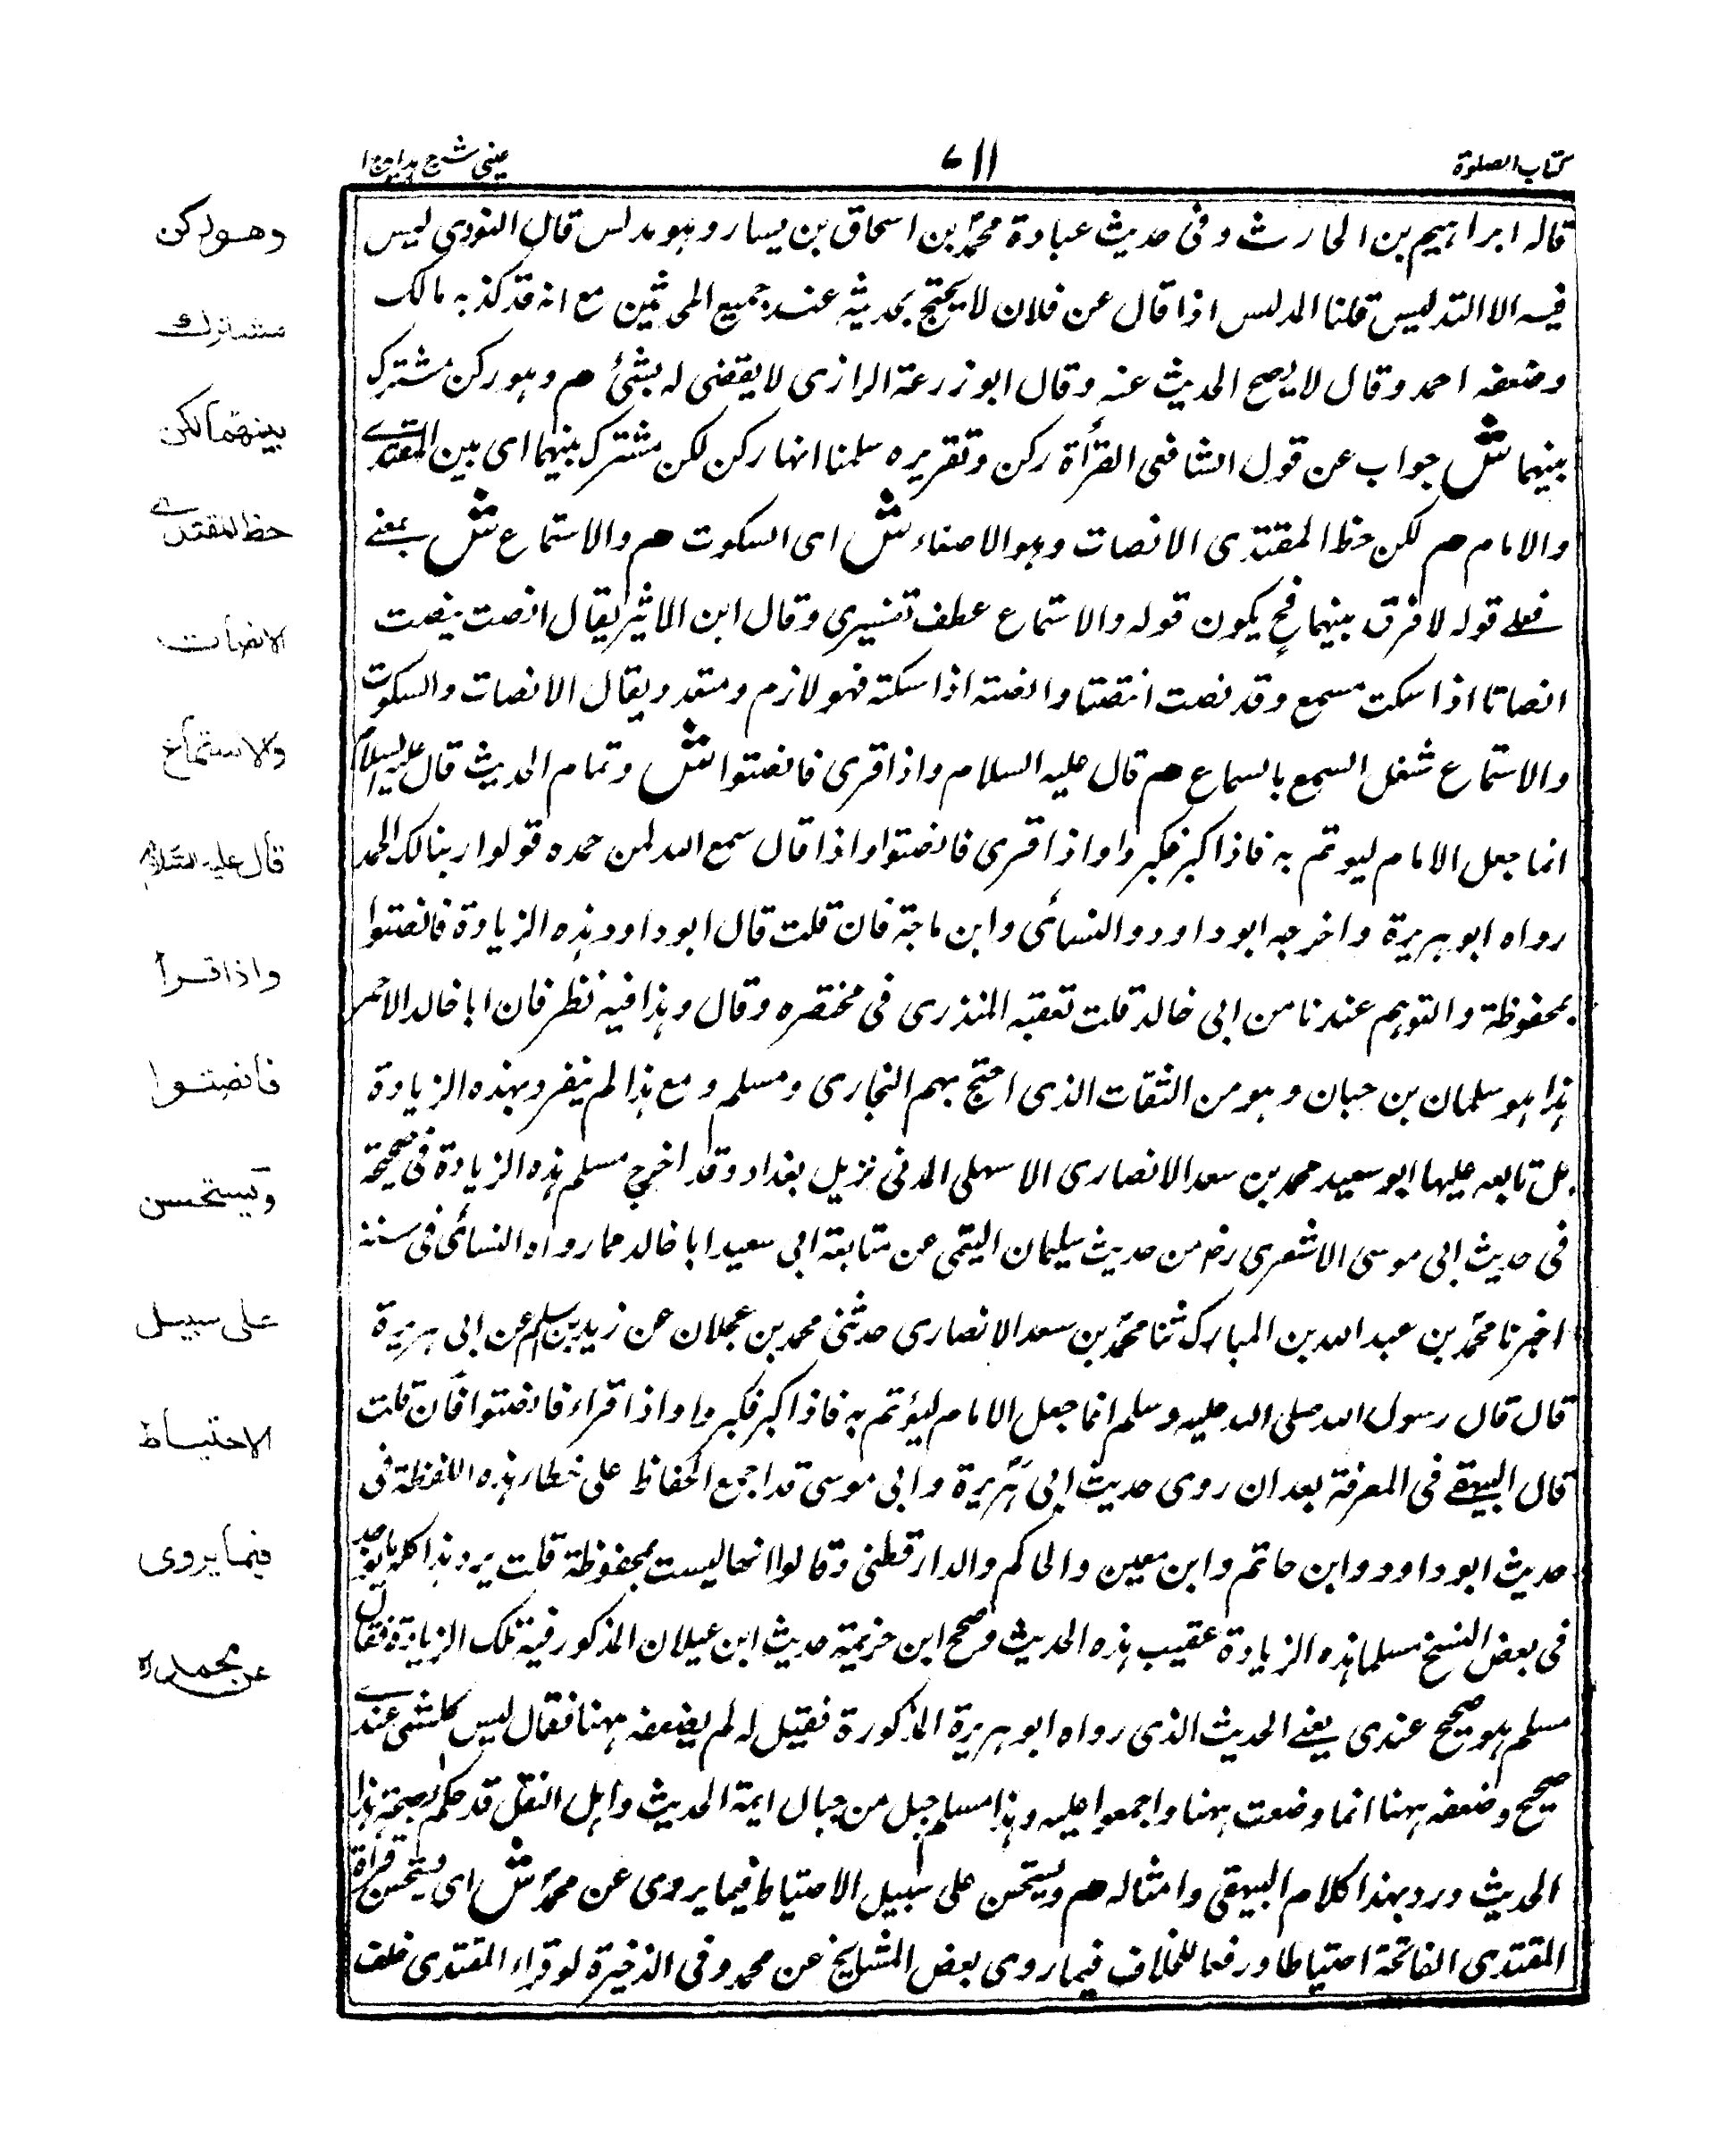 كتاب الصلوة
٧١١
عيني شرح هداية ج ١
قاله ابراہيم بن الحارث وفي حديث عبادة محمد بن اسحاق بن يسار وہو مدلس قال النووي ليس
فيہ الا التدليس قلنا المدلس اذا قال عن فلان لا يحتج بحديثہ عند جميع المحدثين مع انہ قد كذبہ مالك
وضعفہ احمد وقال لا يصح الحديث عنہ وقال ابو زرعة الرازي لا يقضى لہ بشئ ھم وہو ركن مشترك
بينہما ش جواب عن قول الشافعي القرأة ركن وتقريرہ سلمنا انہا ركن لكن مشترك بينہما اي بين المقتدي
والامام ھم لكن حظ المقتدي الانصات وہو الاصغاء ش اي السكوت ھم والاستماع ش بمعنے
فعلے قولہ لا فرق بينہما فح يكون قولہ والاستماع عطف تفسيري وقال ابن الاثير يقال انصت ينصت
انصاتا اذا سكت مسمع وقد نصت انتصتا وانصتہ اذا سكتہ فہو لازم ومتعد ويقال الانصات والسكوت
والاستماع شغل السمع بالسماع ھم قال عليہ السلام واذا قرى فانصتوا ش وتمام الحديث قال عليہ السلام
انما جعل الامام ليوتم بہ فاذا كبر فكبروا واذا قرى فانصتوا واذا قال سمع اللہ لمن حمدہ قولوا ربنا لك الحمد
رواہ ابو ہريرة واخرجہ ابو داود والنسائي وابن ماجة فان قلت قال ابو داود ہذہ الزيادة فانصتوا
بمحفوظة والتوہم عندنا من ابي خالد قلت تعقبہ المنذري في مختصرہ وقال وہذا فيہ نظر فان ابا خالد الاحمر
ہذا ہو سلمان بن حبان وہو من الثقات الذي احتج بہم البخاري ومسلم ومع ہذا لم ينفرد بہذہ الزيادة
بل تابعہ عليہا ابو سعيد محمد بن سعد الانصاري الاسہلي المدني نزيل بغداد وقد اخرج مسلم ہذہ الزيادة في صحيحہ
في حديث ابي موسى الاشعري رض من حديث سليمان التيمي عن متابعة ابي سعيد ابا خالد مما رواہ النسائي في سننہ
اخبرنا محمد بن عبد اللہ بن المبارك ثنا محمد بن سعد الانصاري حدثني محمد بن عجلان عن زيد بن اسلم عن ابي ہريرة
قال قال رسول اللہ صلى اللہ عليہ وسلم انما جعل الامام ليؤتم بہ فاذا كبر فكبروا واذا قراء فانصتوا فان قلت
قال البيہقے في المعرفة بعد ان روى حديث ابي ہريرة وابي موسى قد اجمع الحفاظ على خطاء ہذہ اللفظة في
حديث ابو داود وابن حاتم وابن معين والحاكم والدارقطني وقالوا انها ليست بمحفوظة قلت يرد ہذا كلہ ما يوجد
في بعض النسخ مسلما ہذہ الزيادة عقيب ہذہ الحديث وصحح ابن خزيمة حديث ابن عيلان المذكور فيہ تلك الزيادة فقال
مسلم ہو صحيح عندي يعنے الحديث الذي رواہ ابو ہريرة المذكورة فقيل لہ لم يضعفہ ہہنا فقال ليس كلشى عندي
صحيح وضعفہ ہہنا انما وضعت ہہنا واجمعوا عليہ وہذا مسلم جبل من جبال ايمة الحديث واہل النقل قد حكم بصحة ہذا
الحديث ورد بہذا كلام البيہقي وامثالہ ھم ويستحسن على سبيل الاحتياط فيما يروى عن محمد ش اي يستحسن قراءة
المقتدي الفاتحة احتياطا ورفعا للخلاف فيما روى بعض المشايخ عن محمد وفي الذخيرة لو قراء المقتدي خلف
وهو ركن
مشترك
بينهما لكن
حظ المقتدے
الانصات
والاستماع
قال عليہ السلام
واذا قرأ
فانصتوا
ويستحسن
على سبيل
الاحتياط
فيما يروى
عن محمد